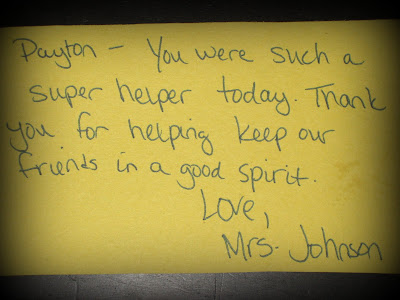 Payton - You were such a
super helper today. Thank
you for helping keep our
friends in a good spirit.
Love,
Mrs. Johnson